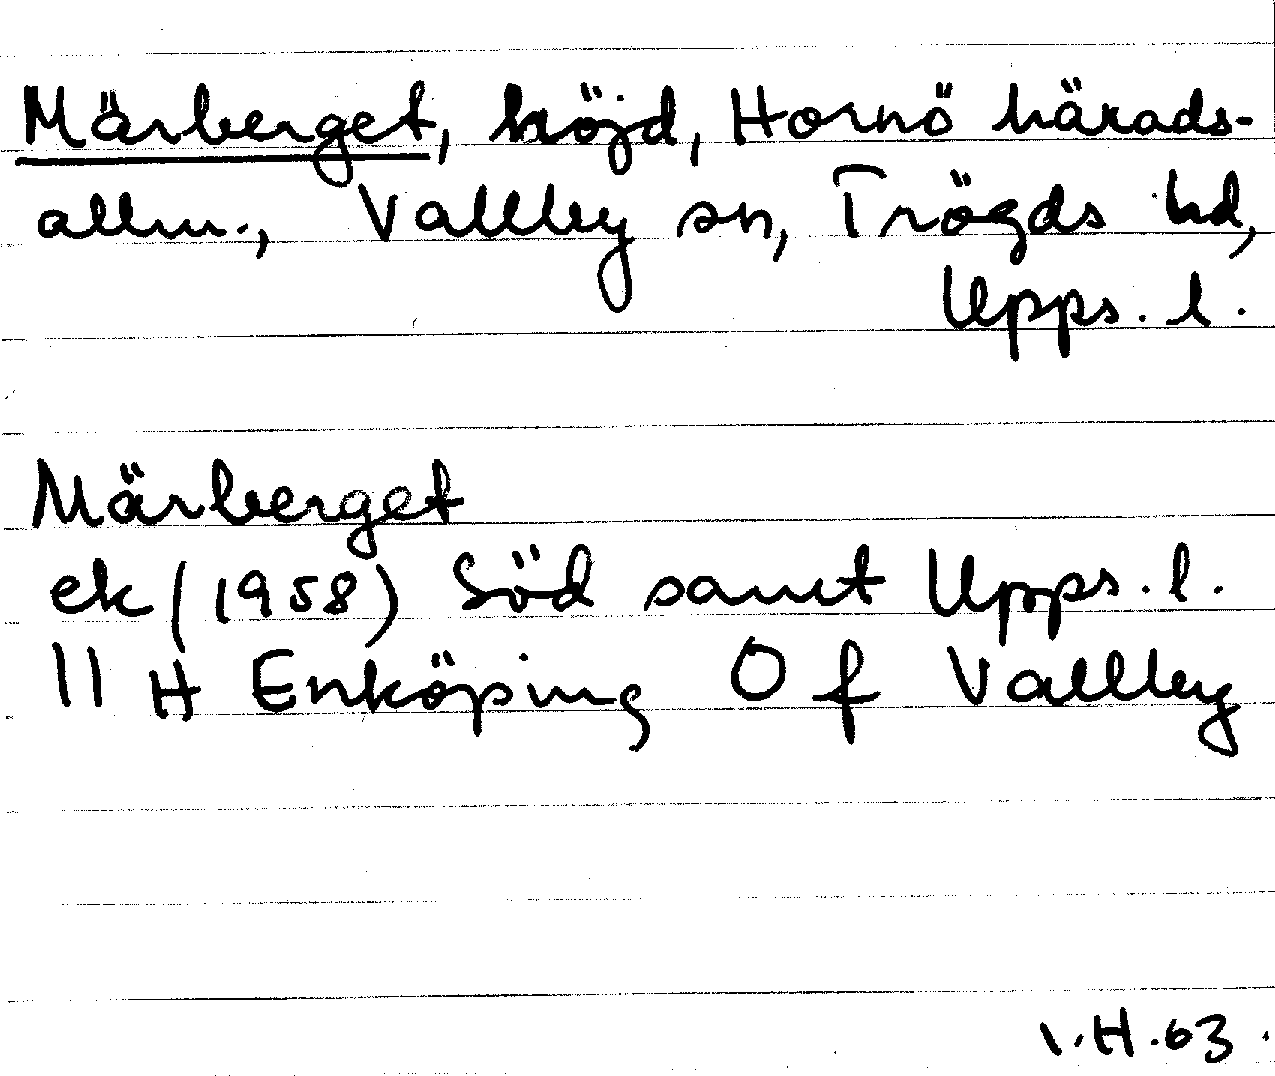 Märberget, höjd, Hornö härads-
allm., Vallby sn, Trögds hd,
Upps. l.
Märberget
ek (1958) Söd samt Upps. l.
11 H Enköping Of Vallby
I.H.63.